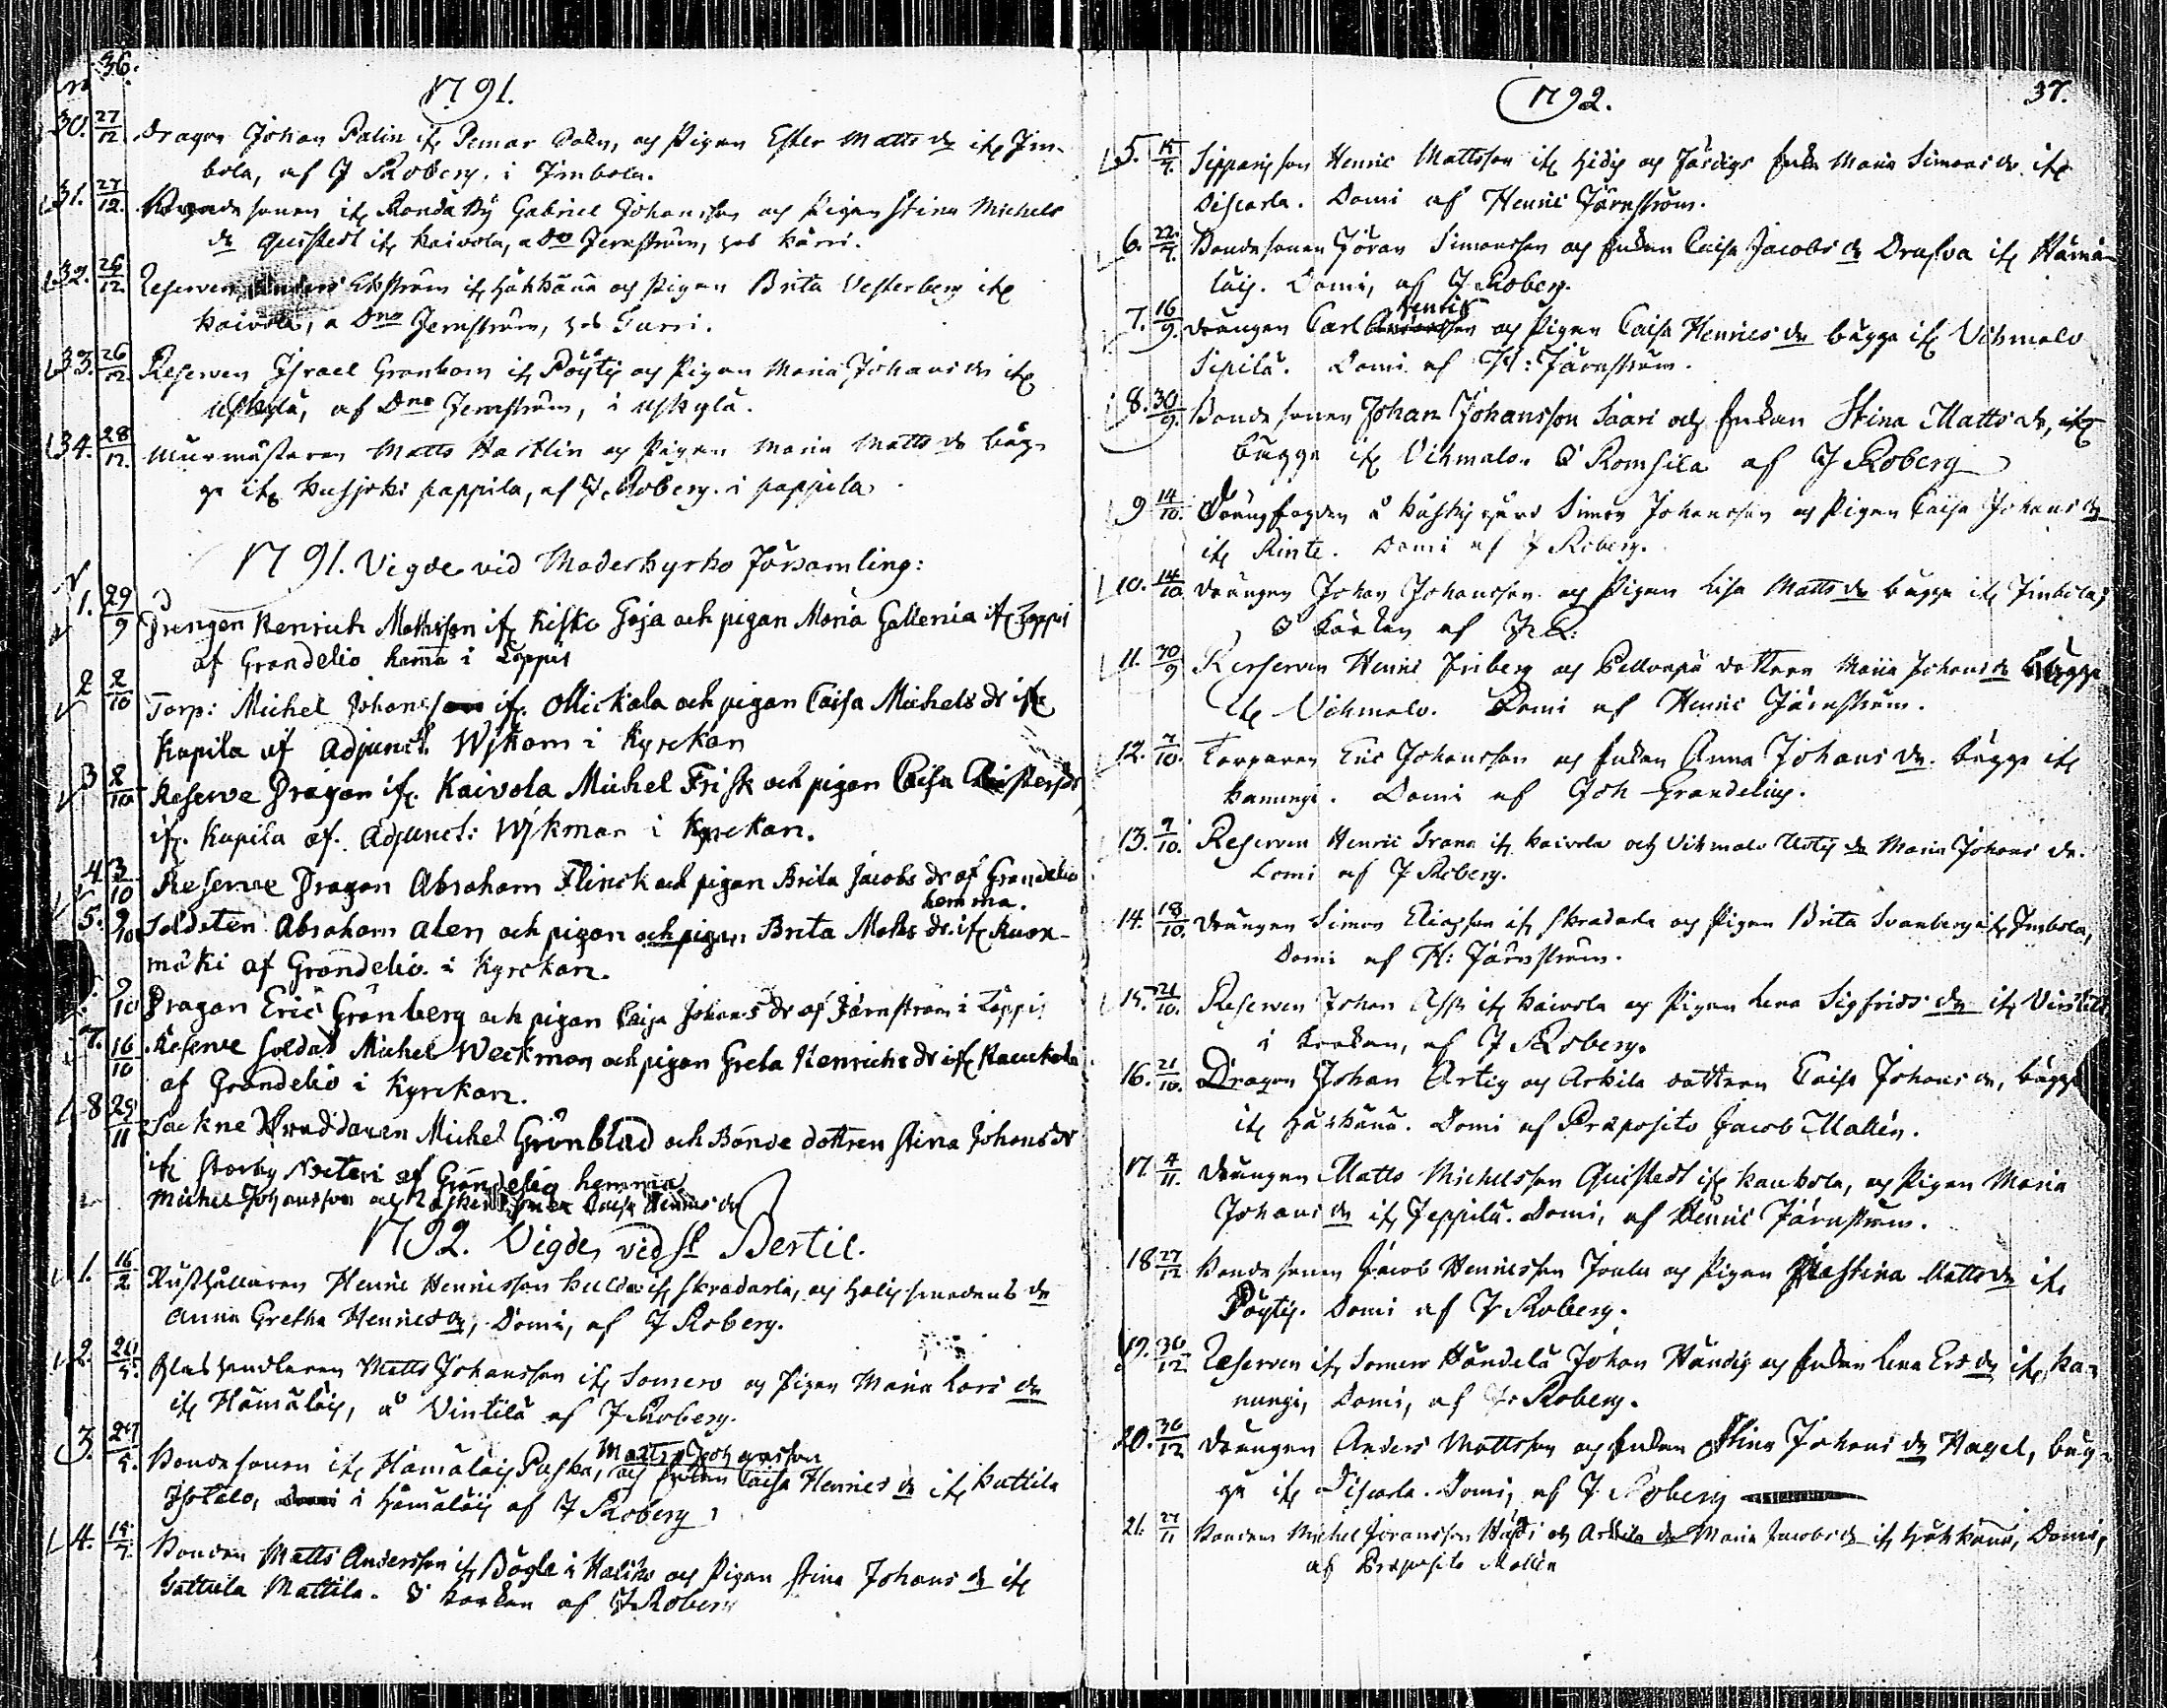 36.
n
1791.
30. 27/12 Dragon Johan Palin ifr Pemar Sokn, och Pigan Ester Matts dr ifr Im-
bola, af J Roberg. i Imbola.
31. 27/12. Bonde sonen ifr Ronda By Gabriel Johansson och Pigan Stina Michels
dr Quistedt ifr Kaivola, a Dno Jernström, hos Karri.
32. 26/12 Reserven Anders Ekström ifr Häkkänä och Pigan Brita Vesterberg ifr
Kaivola, a Dno Jernström, hos Furri.
33. 26/12. Reserven Israel Granbom ifr Pöyty och Pigan Maria Johans dr ifr
Uskylä, af Dno Jernström, i Uskylä.
34. 28/12. Murmästaren Matts Hartlin och Pigan Maria Matts dr båg-
ge ifr Kusjoki pappila, af J. Roberg. i pappila.
1791. Vigde vid Moderkyrko Församling:
N
1. 29/9 Drengen Henrich Mathsson ifr Kisko Goja och pigan Maria Gallenia ifr Loppis
af Grandelio hema i Loppis
2 2/10 Torp: Michel Johansson ifr. Ollickala och pigan Caisa Michels dr ifr
Kapila af Adjunct. Wikman i Kyrckan
3 2/10 Reserve Dragon ifr. Kaivola Michel Frisk och pigan Caisa Christers dr
ifr. Kapila af. Adjunct: Wikman i Kyrckan.
4 3/10 Reserve Dragon Abraham Flinck och pigan Brita Jacobs dr af Grandelio
hemma.
5. 9/10 Soldaten Abraham Alen och pigan och pigan Brita Maths dr. ifr Kuon-
mäki af Grandelio. i Kyrckan.
9/10 Dragon Eric Grönberg och pigan Caisa Johans dr af Järnström i Loppis
7. 16/10 Reserve soldat Michel Weckman och pigan Greta Henrichs dr ifr Kauckola
af Grandelio i Kyrckan.
8 29/11 Sockne Skreddaren Michel Grönblad och Bonde dottren Stina Johans dr
ifr Storby Nieteri af Grandelio hemma
Michel Johansson och Enkan Caisa Henrics dr
1792. Vigde, vid St Bertil.
1. 16/2 Rusthållaren Henric Henricsson Kulda ifr Skradarla, och
Anna Gretha Henrics dr, Domi, af J Roberg.
2. 20/5. Glashandlaren Matts Johansson ifr Somero och Pigan Maria Lars dr
ifr Hämäläis, å Vintilä af J Roberg.
Matts Johansson
3. 24/5. Bondesonen ifr Hämäläis Paska, och Enkan Caisa Henrics dr ifr Kattila
Isotalo, i Hämäläis af J Roberg
4. 15/7. Bonden Matts Andersson ifr Bögle i Haliko och Pigan Stina Johans dr ifr
Sattula Mattila. I Kyrkan af J Roberg
1792.
37.
5. 15/7. Henric Mattsson ifr Hidis och Enka Maria Simons dr. ifr
Discarla. Domi af Henric Järnström.
6. 22/7. Bondesonen Jöran Simonsson och Enkan Caisa Jacobs dr Drafva ifr Hämä-
läis. Domi, af J Roberg.
Henrics
7. 16/9. Drängen Carl Andersson och Pigan Caisa Henrics dr bägge ifr Vihmalo
Sipilä. Domi af H: Järnström.
8. 30/9. Bondesonen Johan Johansson Saari och Enkan Stina Matts dr, ifr
bägge ifr Vihmalo. I Romsila af J Roberg
9 14/10. Drängfogden å Kuskis gård Simon Johansson och Pigan Caisa Johans dr
ifr Rinte. Domi af J Roberg.
10. 14/10 Drängen Johan Johansson och Pigan Lisa Matts dr bägge ifr Imbola,
I Kyrkan af J R:
11. 30/9 Reserven Henric Friberg och Pellonpä dottren Maria Johans dr bägge
ifr Vihmalo. Domi af Henric Järnström.
12. 7/10. Torparen Eric Johansson och Enkan Anna Johans dr. bägge ifr
Kanungi. Domi af Joh Grandelius.
13. 7/10. Reserven Henric Grann ifr Kaivola och Vihmalo Uoti dr Maria Johans dr.
Domi af J Roberg.
14. 18/10. Drängen Simon Eliasson ifr Skradarla och Pigan Brita Svanberg ifr Imbola,
Domi af H: Järnström.
15. 21/10. Reserven Johan Ask ifr Kaivola och Pigan Lena Sigfrids dr ifr Vintilä
i Kyrkan, af J Roberg.
16. 21/10. Dragon Johan Artig och Arkila dottren Caisa Johans dr, bägge
ifr Häkkänä. Domi af Præposito Jacob Mallén.
17. 4/11. Drängen Matts Michelsson Quistedt ifr Kaukola, och Pigan Maria
Johans dr ifr Jeppilä. Domi, af Henric Järnström.
18 27/12 Bondesonen Jacob Henricsson Joula och Pigan Justina Matts dr ifr
Pöytis. Domi af J Roberg.
19. 30/12. Reserven ifr Somero Händelä Johan Händig och Enkan Lena Ers dr ifr Ka-
nungi, Domi, af J. Roberg.
20. 30/12 Drängen Anders Mattsson och Enkan Stina Johans dr Hagel, bäg-
ge ifr Discarla. Domi, af J Roberg
21. 27/11 Bonden Michel Jöransson och Arkila dr Maria Jacobs dr ifr Häkkänä, Domi,
af Præposito Mallén